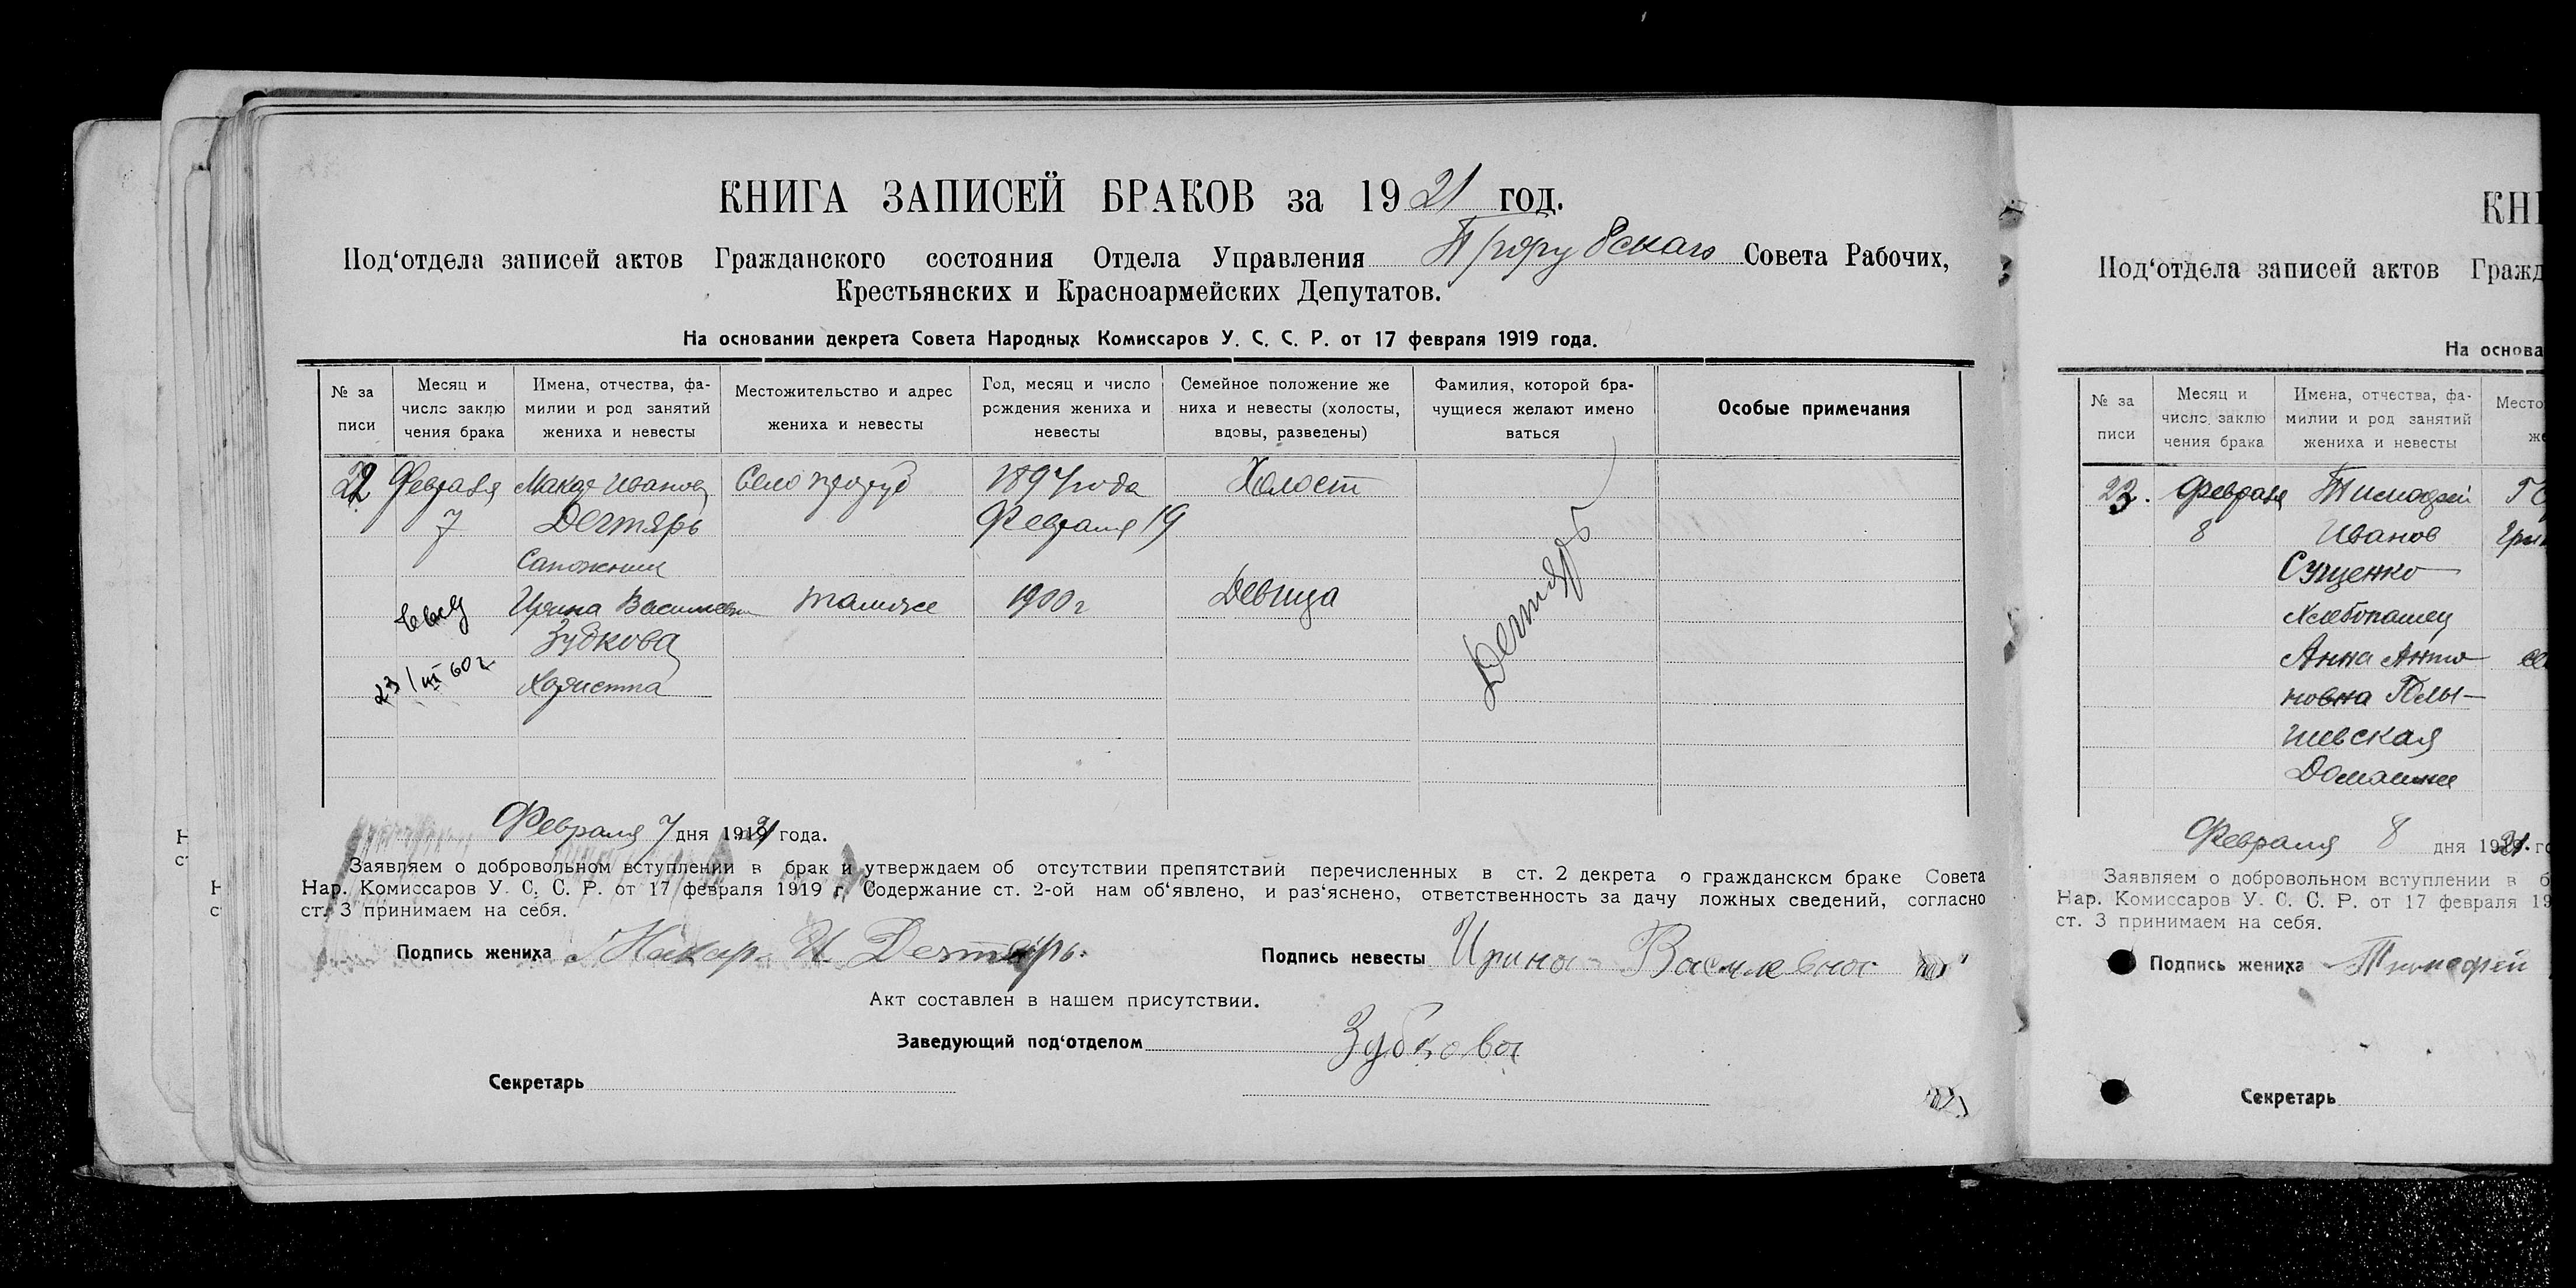 КНИГА ЗАПИСЕЙ БРАКОВ за 1921 год.
Под‘отдела записей актов Гражданского состояния Отдела Управления Совета Рабочих,
Крестьянских и Красноармейских Депутатов.
На основании декрета Совета Народных Комиссаров У. С. С. Р. от 17 февраля 1919 года.
№ за писи
Месяц и число заклю чения брака
Имена, отчества, фа- милии и род занятий жениха и невесты
Местожительство и адрес жениха и невесты
Год, месяц и число рождения жениха и невесты
Семейное положение же ниха и невесты (холосты, вдовы, разведены)
Фамилия, которой бра- чущиеся желают имено ваться
Особые примечания
22 Февраля Макар Иванов Село 1897 года Холост
7 Дегтярь Февраля 19
Сапожник
Ирина Васильевн тамже 1900 г Девица
Зубкова
23/III 60 г
Дегтярь
Февраля 7 дня 1921 года.
Заявляем о добровольном вступлении в брак и утверждаем об отсутствии препятствий перечисленных в ст. 2 декрета о гражданском браке Совета
Нар. Комиссаров У. С. С. Р. от 17 февраля 1919 г. Содержание ст. 2-ой нам об‘явлено, и раз‘яснено, ответственность за дачу ложных сведений, согласно
ст. 3 принимаем на себя.
Подпись жениха Макар И Дегтярь. Подпись невесты Ирина Василевна
Акт составлен в нашем присутствии.
Заведующий под‘отделом Зубкова
Секретарь
КНИ
Под‘отдела записей актов Гражд
На основа
№ за писи
Месяц и число заклю чения брака
Имена, отчества, фа- милии и род занятий жениха и невесты
Место же
23. Февраля Тимофей
8 Иванов
Сущенко
Хлебопашец
Анна Анто
новна Голы-
шевская
Февраля 8 дня 1921. го
Заявляем о добровольном вступлении в б
Нар. Комиссаров У. С. С. Р. от 17 февраля 19
ст. 3 принимаем на себя.
Подпись жениха Тимофей
Секретарь